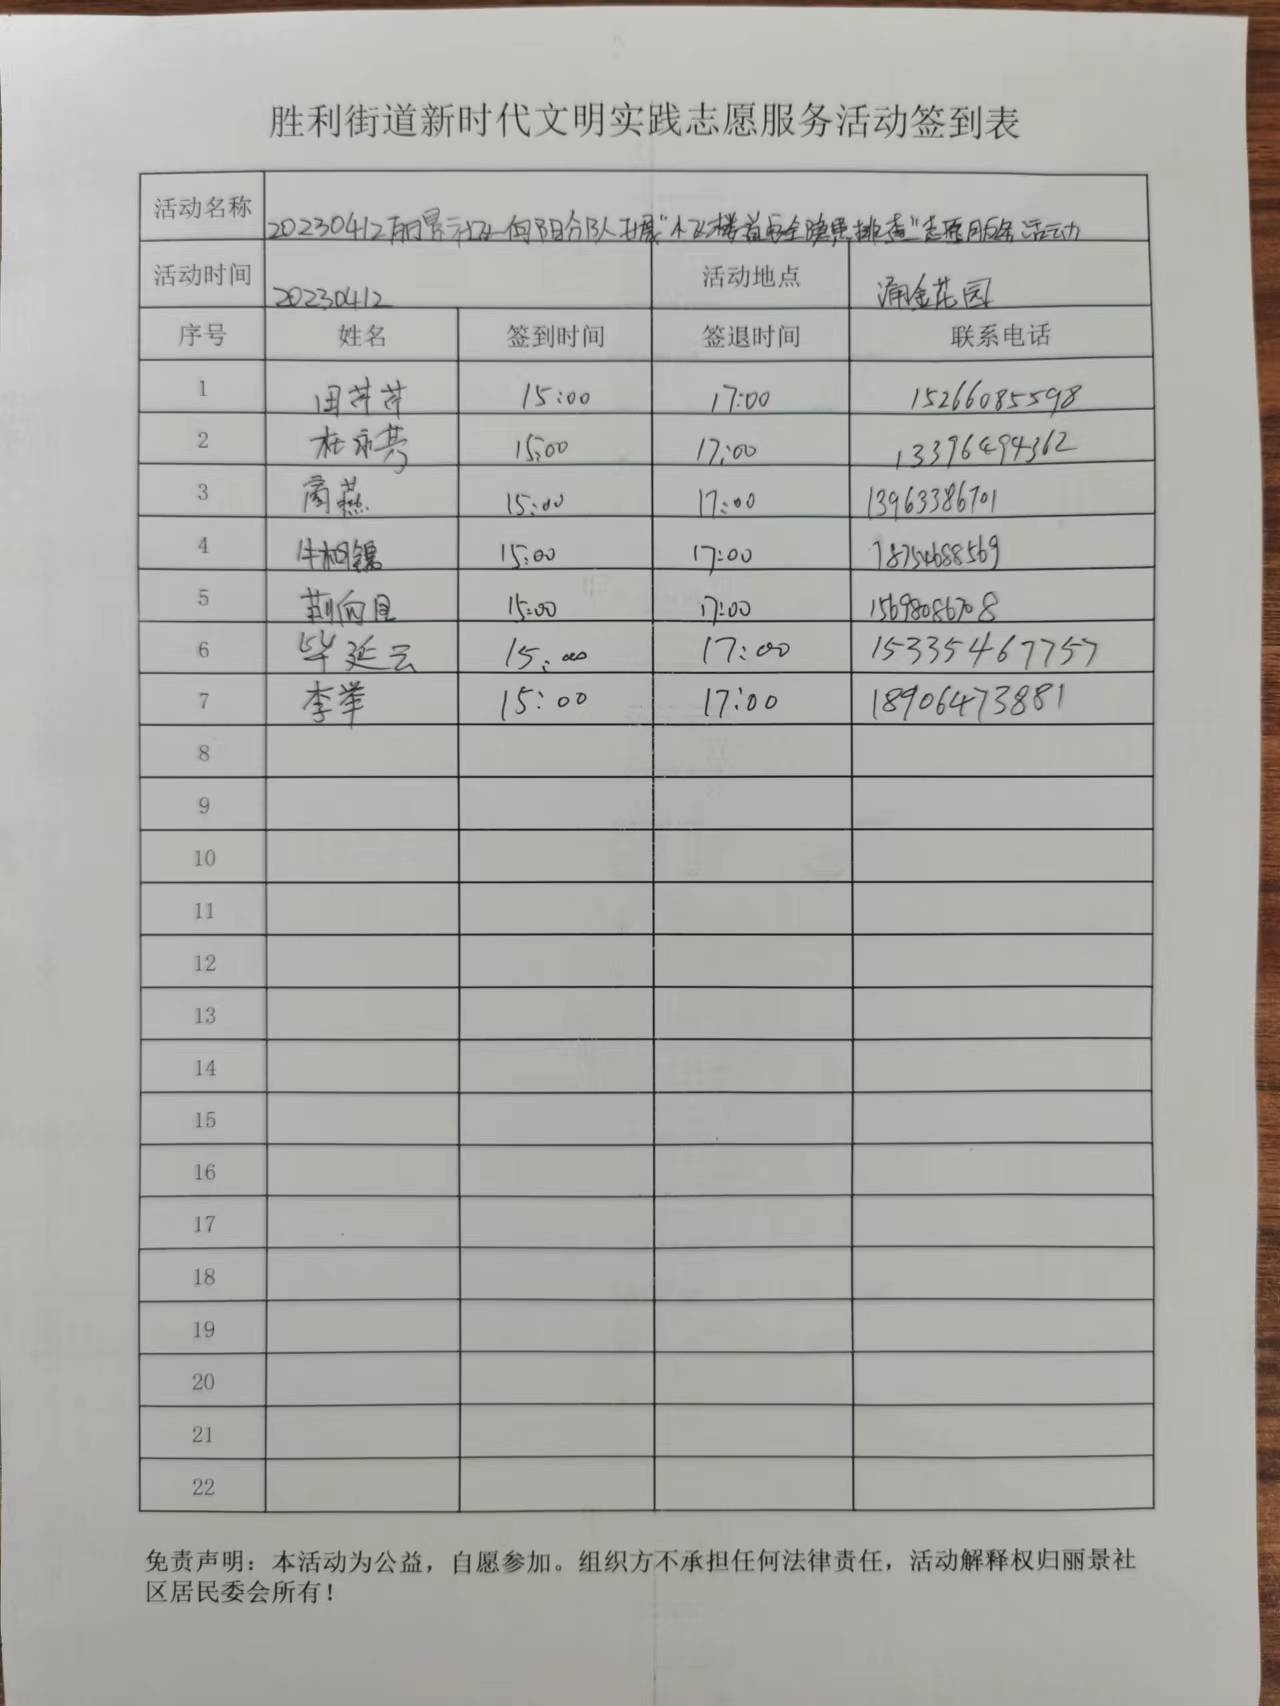 胜利街道新时代文明实践志愿服务活动签到表
活动名称 20230412丽景社区向阳分队开展“小区楼道安全隐患排查”志愿服务活动
活动时间 20230412 活动地点 涌金花园
序号 姓名 签到时间 签退时间 联系电话
1 田芹芹 15:00 17:00 15266085598
2 杜永芳 15:00 17:00 13396494362
3 商燕 15:00 17:00 13963386701
4 牛相锦 15:00 17:00 18754688569
5 荆向 15:00 17:00 15698086708
6 毕延云 15:00 17:00 15335467757
7 李举 15:00 17:00 18906473881
8
9
10
11
12
13
14
15
16
17
18
19
20
21
22
免责声明：本活动为公益，自愿参加。组织方不承担任何法律责任，活动解释权归丽景社
区居民委会所有！